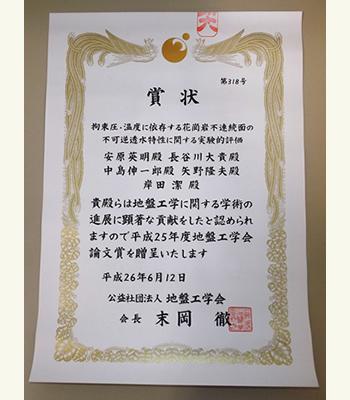 第318号
賞状
拘束圧・温度に依存する花崗岩不連続面の
不可逆透水特性に関する実験的評価
安原英明殿 長谷川大貴殿
中島伸一郎殿 矢野隆夫殿
岸田 潔 殿
貴殿らは地盤工学に関する学術の
進展に顕著な貢献をしたと認められ
ますので平成25年度地盤工学会
論文賞を贈呈いたします
平成26年6月12日
公益社団法人 地盤工学会
会長 末岡 徹